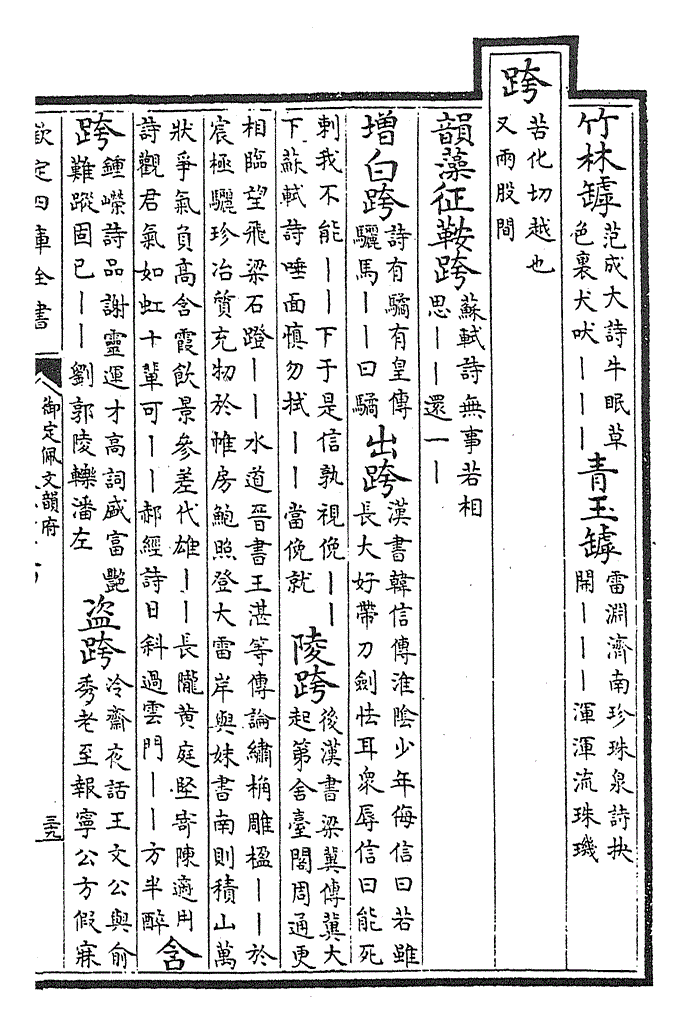 竹林罅
范成大詩牛眠草
色裏犬吠丨丨丨
青玉罅
雷淵濟南珍珠泉詩抉
開丨丨丨渾渾流珠璣
跨
苦化切越也
又兩股間
韻藻征鞍跨
蘇軾詩無事若相
思丨丨還一丨
增白跨
詩有驈有皇傳
驪馬丨丨曰驈
出跨
漢書韓信傳淮陰少年侮信曰若雖
長大好帶刀劍怯耳衆辱信曰能死
刺我不能丨丨下于是信孰視俛丨丨
下蘇軾詩唾面慎勿拭丨丨當俛就
陵跨
後漢書梁冀傳冀大
起第舍臺閣周通更
相臨望飛梁石蹬丨丨水道晉書王湛等傳論繡桷雕楹丨丨於
宸極驪珍冶質充物於帷房鮑照登大雷岸與妹書南則積山萬
狀爭氣負高含霞飲景參差代雄丨丨長隴黄庭堅寄陳適用
詩觀君氣如虹十輩可丨丨郝經詩日斜過雲門丨丨方半醉
含
跨
鍾嶸詩品謝靈運才高詞盛富艷
難蹤固已丨丨劉郭陵轢潘左
盜跨
冷齋夜話王文公與俞
秀老至報寧公方假寐
欽定四庫全書
御定佩文韻府
三九